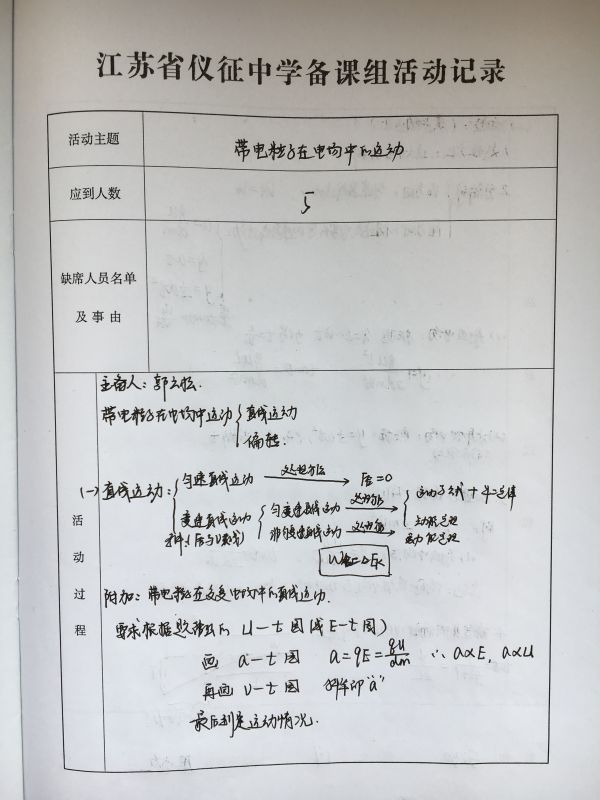 江苏省仪征中学备课组活动记录
活动主题
带电粒子在电场中的运动
应到人数
5
缺席人员名单
及事由
活动过程
主备人：郭云松.
带电粒子在电场中运动 { 直线运动
偏转.
(一) 直线运动： { 匀速直线运动 处理方法→ F合=0
变速直线运动 { 匀变速直线运动 处理方法→ { 运动学公式 + 牛二定律
动能定理
(条件: F合与V共线) 非匀变速直线运动 处理方法→ 动能定理
W合=ΔEk
附加：带电粒子在交变电场中的直线运动.
要求根据题带出的 U－t 图 (或 E－t 图)
画 a－t 图 a=qE=qU/dm ∴ a∝E, a∝U
再画 v－t 图 斜率即"a"
最后判定运动情况.